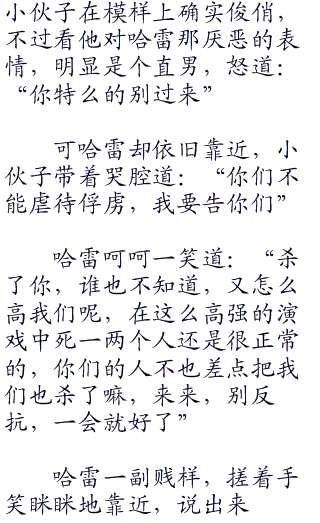 小伙子在模样上确实俊俏，
不过看他对哈雷那厌恶的表
情，明显是个直男，怒道：
“你特么的别过来”
可哈雷却依旧靠近，小
伙子带着哭腔道：“你们不
能虐待俘虏，我要告你们”
哈雷呵呵一笑道：“杀
了你，谁也不知道，又怎么
高我们呢，在这么高强的演
戏中死一两个人还是很正常
的，你们的人不也差点把我
们也杀了嘛，来来，别反
抗，一会就好了”
哈雷一副贱样，搓着手
笑眯眯地靠近，说出来